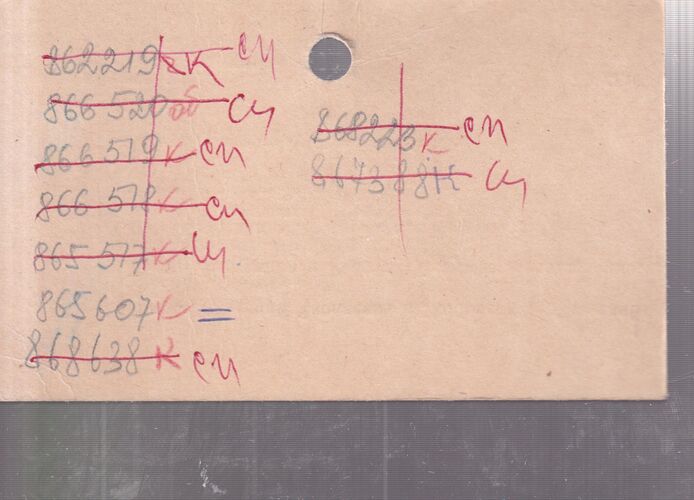 862219 к сп
866520 об сп
866519 к сп
866518 к сп
865517 к сп
865607 к =
868638 к сп
868223 к сп
867388 к сп